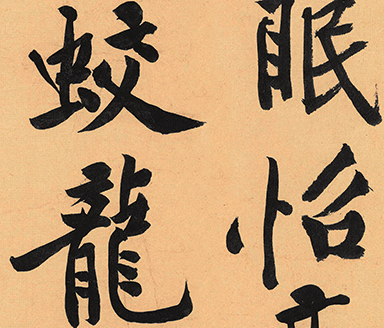 眠怡
蛟龍